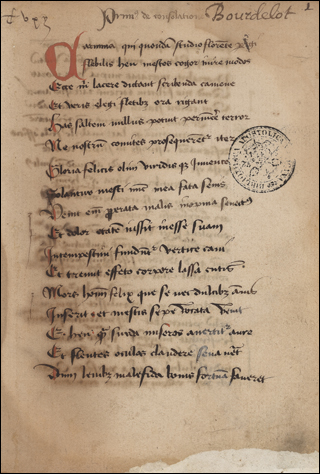 Primus de consolatione Bourdelot 1
Carmina qui quondã studio florēte pegi
Flebilis heu mestos cogor inire modos
Ecce m̃ lacere dictant scribenda camene
Et veris elegi fletibꝫ ora rigant
Has saltem nullus potuit pervincē terror
Ne nostrũ comites prosequerent² iter
Gloria felicis olim viridis qꝫ iuuente
Solantur mesti nũc mea fata senis
Venit em̃ pperata malis inopina senect⁹
Et dolor etatē iussit inesse suam
Intempestiui fundunt² vertice cani
Et tremit effeto corpore lassa cutis
Mors hoım̃ felix que se nec dulcibꝫ annis
Inserit et mestis sepe vocata venit
Et heu q̃ surda miseros auertit² aure
Et flentes oculos claudere seua neḡt
Dum leuibꝫ malefida bonis fortũa faueret